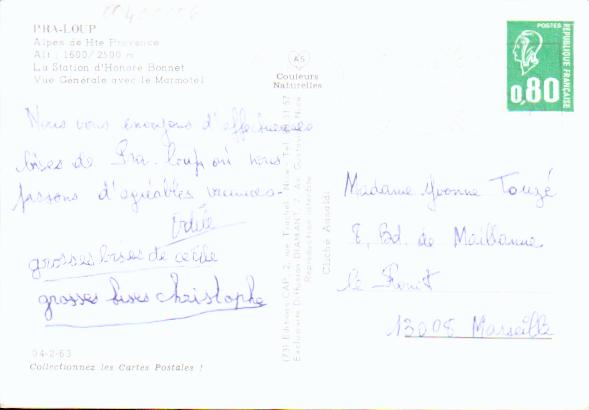 PRA-LOUP
Alpes de Hte Provence
Alt : 1600/2500 m
La Station d'Honoré Bonnet
Vue Générale avec le Marmotel
Nous vous envoyons d'affectueuses
bises de Pra-loup où nous
passons d'agréables vacances-
grosses bises de cécile
grosses bises christophe
04-2-63
Collectionnez les Cartes Postales !
AS
Couleurs
Naturelles
(73) Editions CAP, 2, rue Trachel - Nice - Tél.
Exclusivité Diffusion DIAMANT, 7, Av.
Reproduction interdite
Cliché
POSTES
REPUBLIQUE FRANÇAISE
0,80
Madame Yvonne Touzé
8, Bd. de Maillanne
13008 Marseille